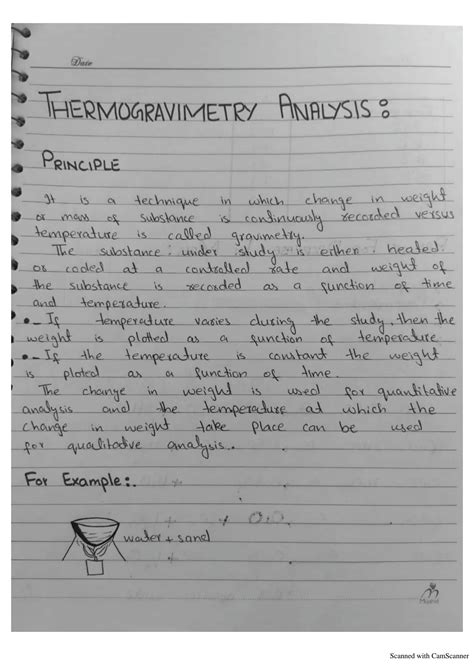 Date
THERMOGRAVIMETRY ANALYSIS :
PRINCIPLE
It is a technique in which change in weight
or mass of substance is continuously recorded versus
temperature is called gravimetry.
The substance under study is either heated
or cooled at a controlled rate and weight of
the substance is recorded as a function of time
and temperature.
• If temperature varies during the study then the
weight is plotted as a function of temperature
• If the temperature is constant the weight
is ploted as a function of time.
The change in weight is used for quantitative
analysis and the temperature at which the
change in weight take place can be used
for qualitative analysis.
For Example:.
water + sand
Scanned with CamScanner